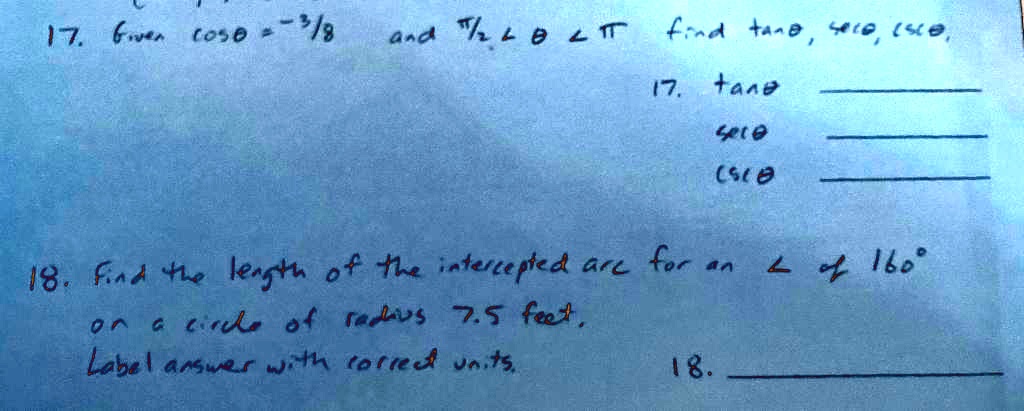 17. Given cosθ = -3/8 and π/2 < θ < π find tanθ, secθ, cscθ.
17. tanθ
secθ
cscθ
18. Find the length of the intercepted arc for an ∠ of 160°
on a circle of radius 7.5 feet.
Label answer with correct units.
18.